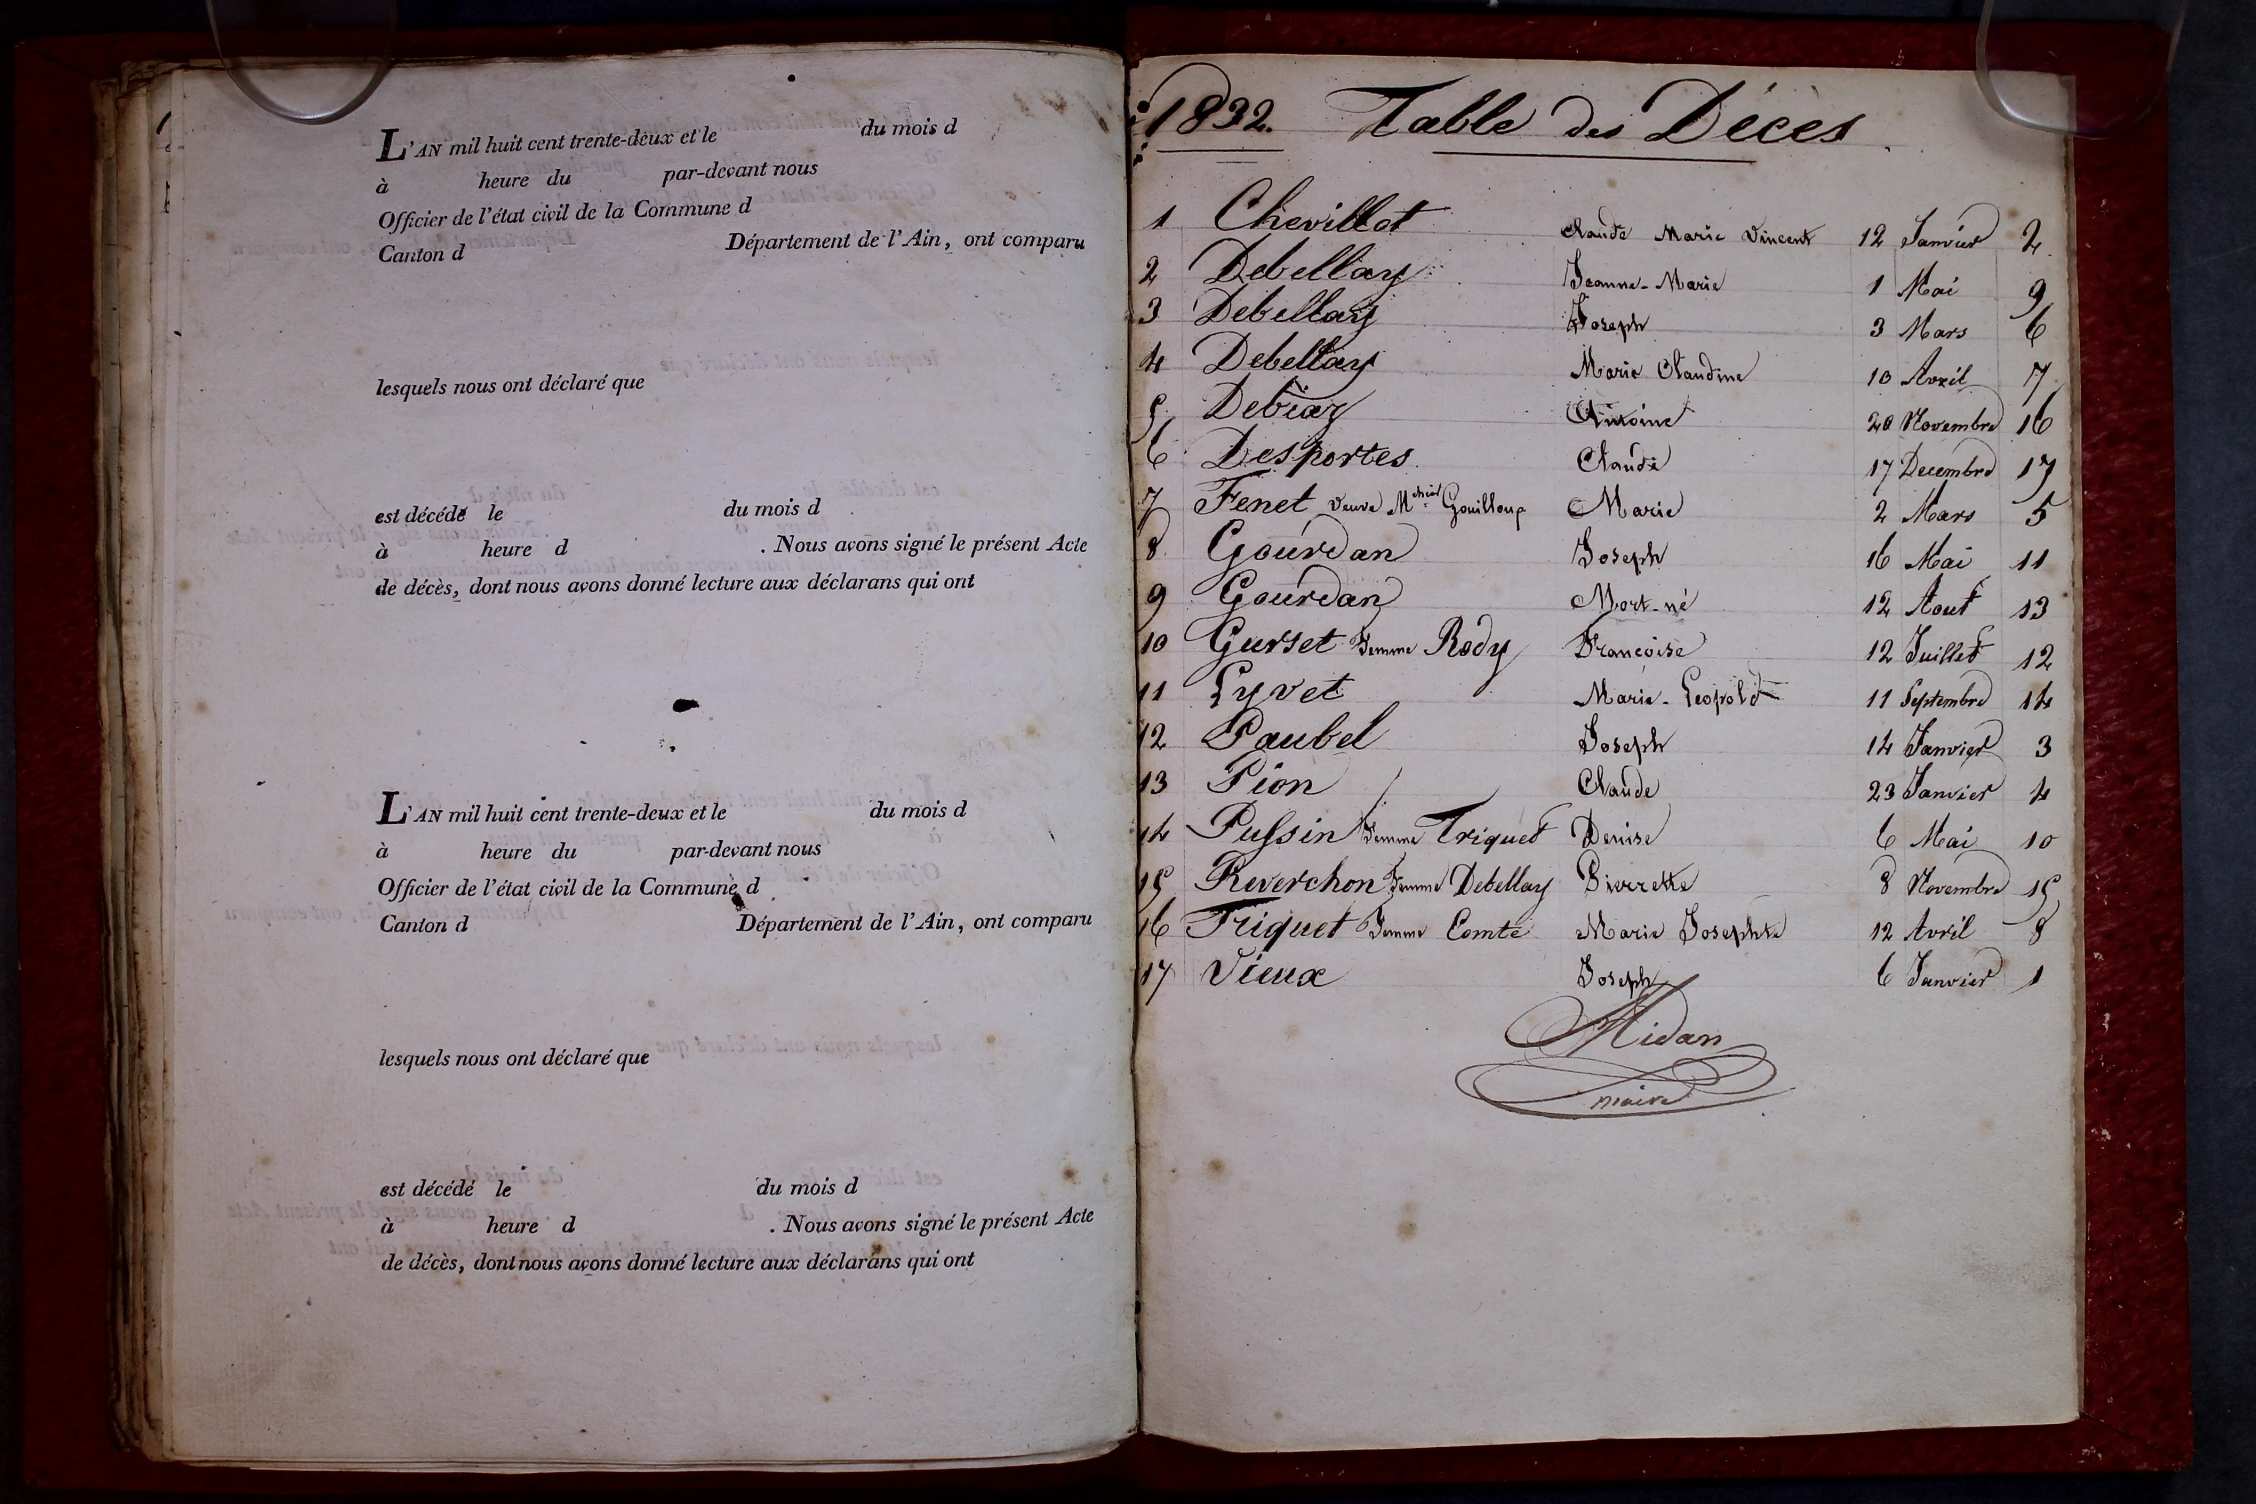 L'AN mil huit cent trente-deux et le du mois d
à heure du par-devant nous
Officier de l'état civil de la Commune d
Canton d Département de l'Ain, ont comparu
lesquels nous ont déclaré que
est décédé le du mois d
à heure d . Nous avons signé le présent Acte
de décès, dont nous avons donné lecture aux déclarans qui ont
L'AN mil huit cent trente-deux et le du mois d
à heure du par-devant nous
Officier de l'état civil de la Commune d
Canton d Département de l'Ain, ont comparu
lesquels nous ont déclaré que
est décédé le du mois d
à heure d . Nous avons signé le présent Acte
de décès, dont nous avons donné lecture aux déclarans qui ont
1832. Table des Décès
1 Chevillot Claude Marie Vincent 12 Janvier 2
2 Debellay Jeanne-Marie 1 Mai 9
3 Debellay Joseph 3 Mars 6
4 Debellay Marie Claudine 10 Avril 7
5 Debiaz Antoine 20 Novembre 16
6 Desportes Claude 17 Decembre 17
7 Fenet veuve Gouilloux Marie 2 Mars 5
8 Gourdan Joseph 16 Mai 11
9 Gourdan Mort-né 12 Aout 13
10 Gurset femme Rody Françoise 12 Juillet 12
11 Lyvet Marie-Leopold 11 Septembre 14
12 Paubel Joseph 14 Janvier 3
13 Pion Claude 23 Janvier 4
14 Pussin femme Triquet Denise 6 Mai 10
15 Reverchon femme Debellay Pierrette 8 Novembre 15
16 Triquet femme Comte Marie Josephte 12 Avril 8
17 Vieux Joseph 6 Janvier 1
Midan
maire